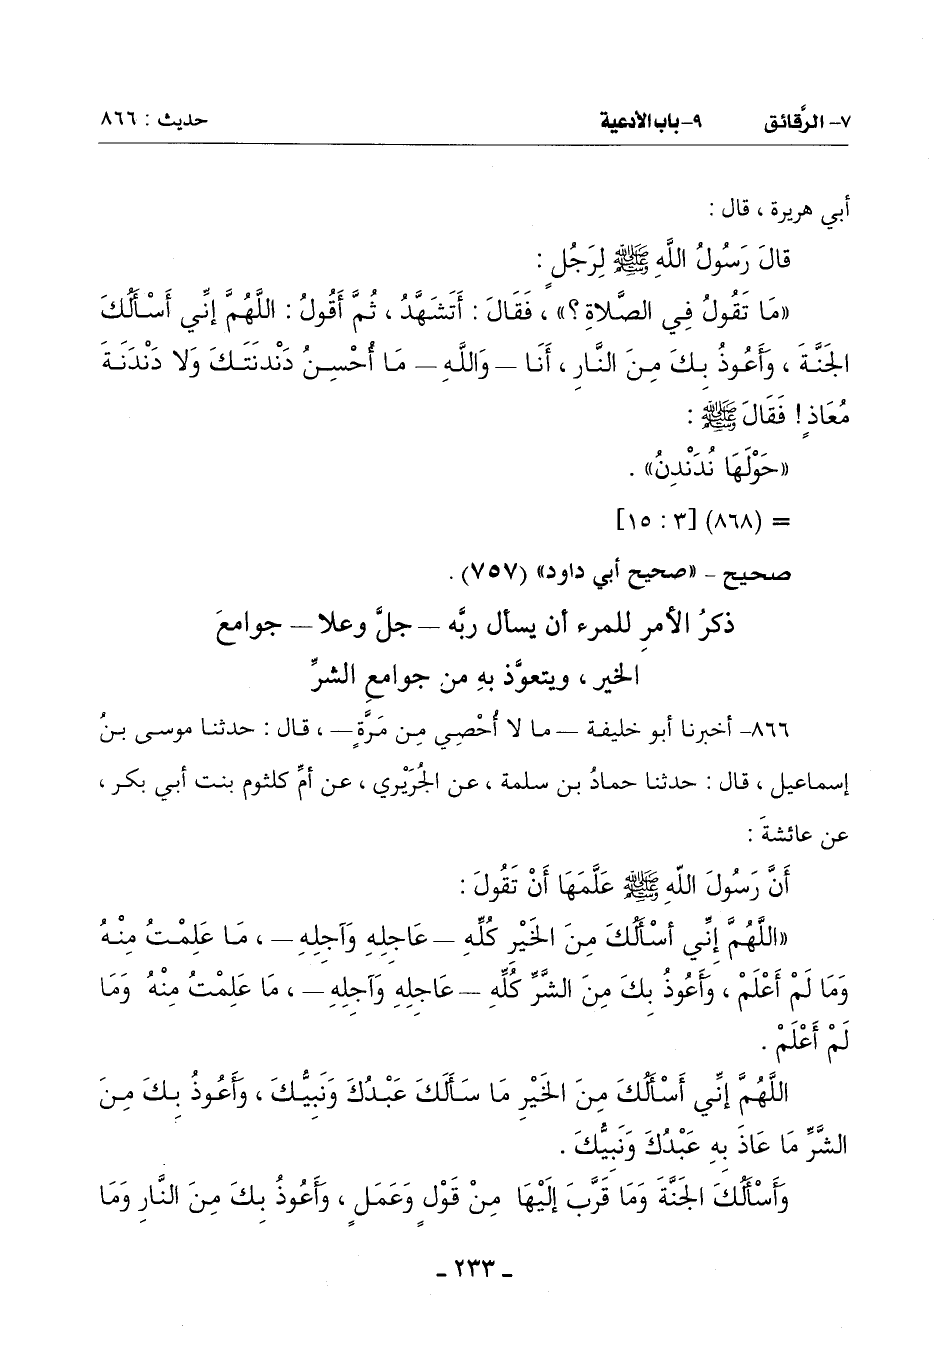 ٧- الرَّقائق ٩- باب الأدعية حديث : ٨٦٦
أبي هريرة ، قال :
قالَ رَسُولُ اللَّهِ ﷺ لِرَجُلٍ :
«مَا تَقُولُ فِي الصَّلاةِ ؟» ، فَقَالَ : أَتَشَهَّدُ ، ثُمَّ أَقُولُ : اللَّهُمَّ إِنِّي أَسْأَلُكَ
الجَنَّةَ ، وَأَعُوذُ بِكَ مِنَ النَّارِ ، أَنَا – وَاللَّهِ – مَا أُحْسِنُ دَنْدَنَتَكَ وَلا دَنْدَنَةَ
مُعَاذٍ ! فَقَالَ ﷺ :
«حَوْلَهَا نُدَنْدِنُ» .
= (٨٦٨) [٣ : ١٥]
صحيح – «صحيح أبي داود» (٧٥٧) .
ذكرُ الأمرِ للمرء أن يسأل ربَّه – جلَّ وعلا – جوامعَ
الخير ، ويتعوَّذ بهِ من جوامعِ الشرِّ
٨٦٦- أخبرنا أبو خليفة – ما لا أُحْصِي مِن مَرَّةٍ – ، قال : حدثنا موسى بنُ
إسماعيل ، قال : حدثنا حمادُ بن سلمة ، عن الجُرَيْري ، عن أمِّ كلثوم بنت أبي بكر ،
عن عائشةَ :
أَنَّ رَسُولَ اللَّهِ ﷺ عَلَّمَهَا أَنْ تَقُولَ :
«اللَّهُمَّ إِنِّي أَسْأَلُكَ مِنَ الخَيْرِ كُلِّهِ – عَاجِلِهِ وَآجِلِهِ – ، مَا عَلِمْتُ مِنْهُ
وَمَا لَمْ أَعْلَمْ ، وَأَعُوذُ بِكَ مِنَ الشَّرِّ كُلِّهِ – عَاجِلِهِ وَآجِلِهِ – ، مَا عَلِمْتُ مِنْهُ وَمَا
لَمْ أَعْلَمْ .
اللَّهُمَّ إِنِّي أَسْأَلُكَ مِنَ الخَيْرِ مَا سَأَلَكَ عَبْدُكَ وَنَبِيُّكَ ، وَأَعُوذُ بِكَ مِنَ
الشَّرِّ مَا عَاذَ بِهِ عَبْدُكَ وَنَبِيُّكَ .
وَأَسْأَلُكَ الجَنَّةَ وَمَا قَرَّبَ إِلَيْهَا مِنْ قَوْلٍ وَعَمَلٍ ، وَأَعُوذُ بِكَ مِنَ النَّارِ وَمَا
- ٢٣٣ -